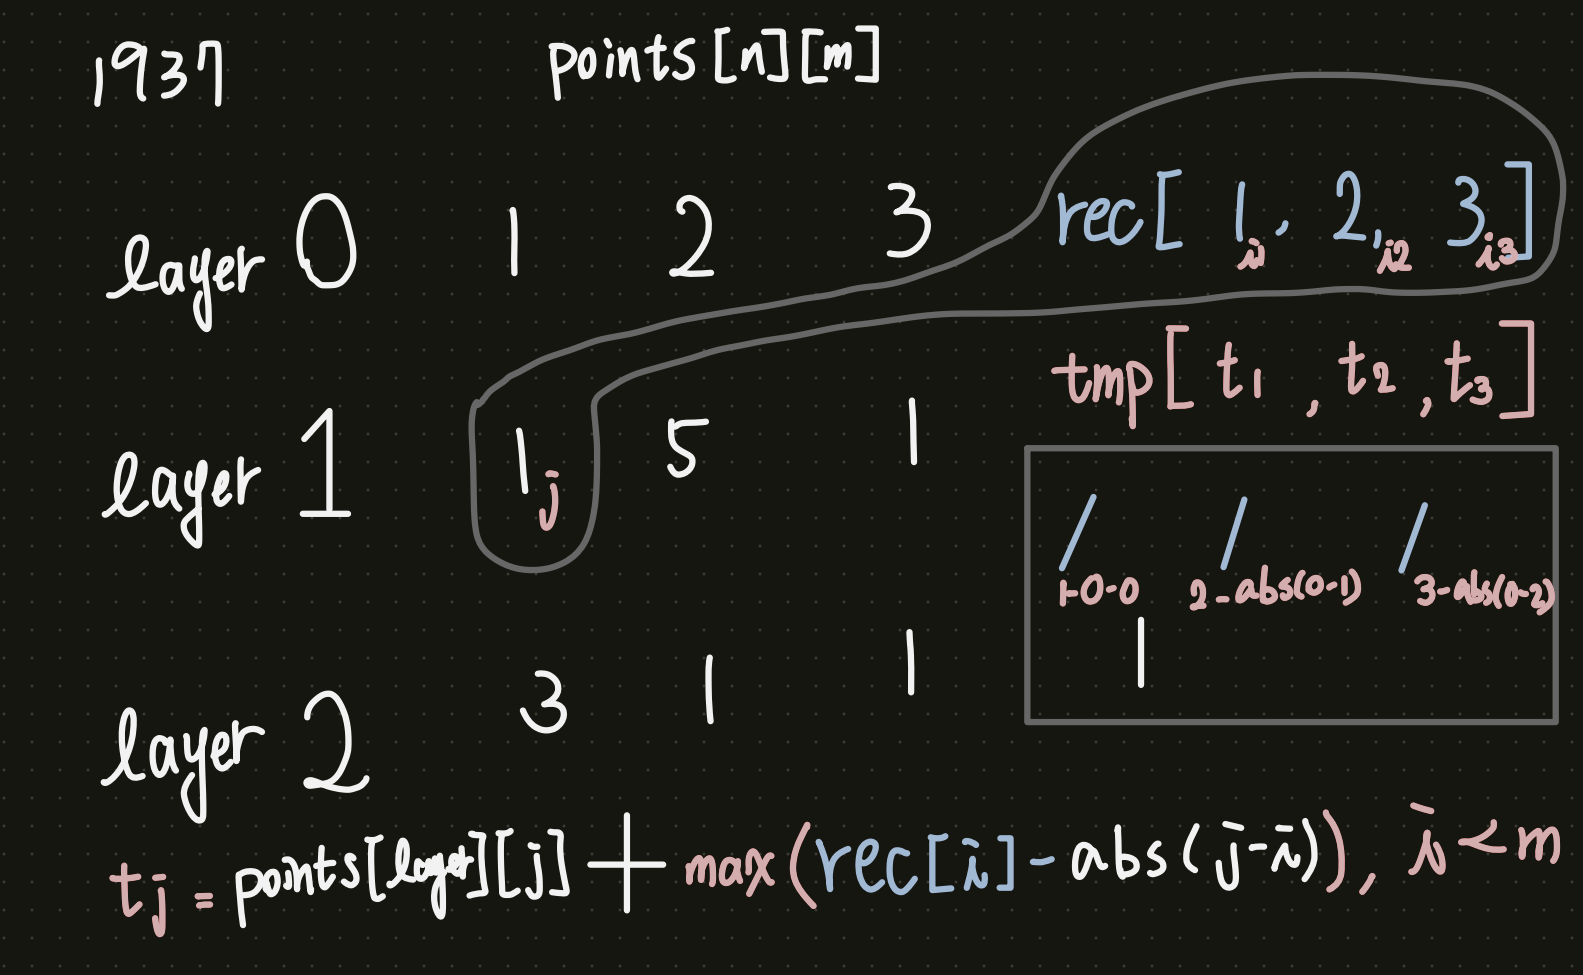 1937 points[n][m]
layer 0 1 2 3 rec[ 1, 2, 3 ]
i1 i2 i3
tmp[ t1 , t2 , t3 ]
layer 1 1 j 5 1
1-0-0 2-abs(0-1) 3-abs(0-2)
1
layer 2 3 1 1
tj = points[layer][j] + max(rec[i] - abs(j-i)), i < m